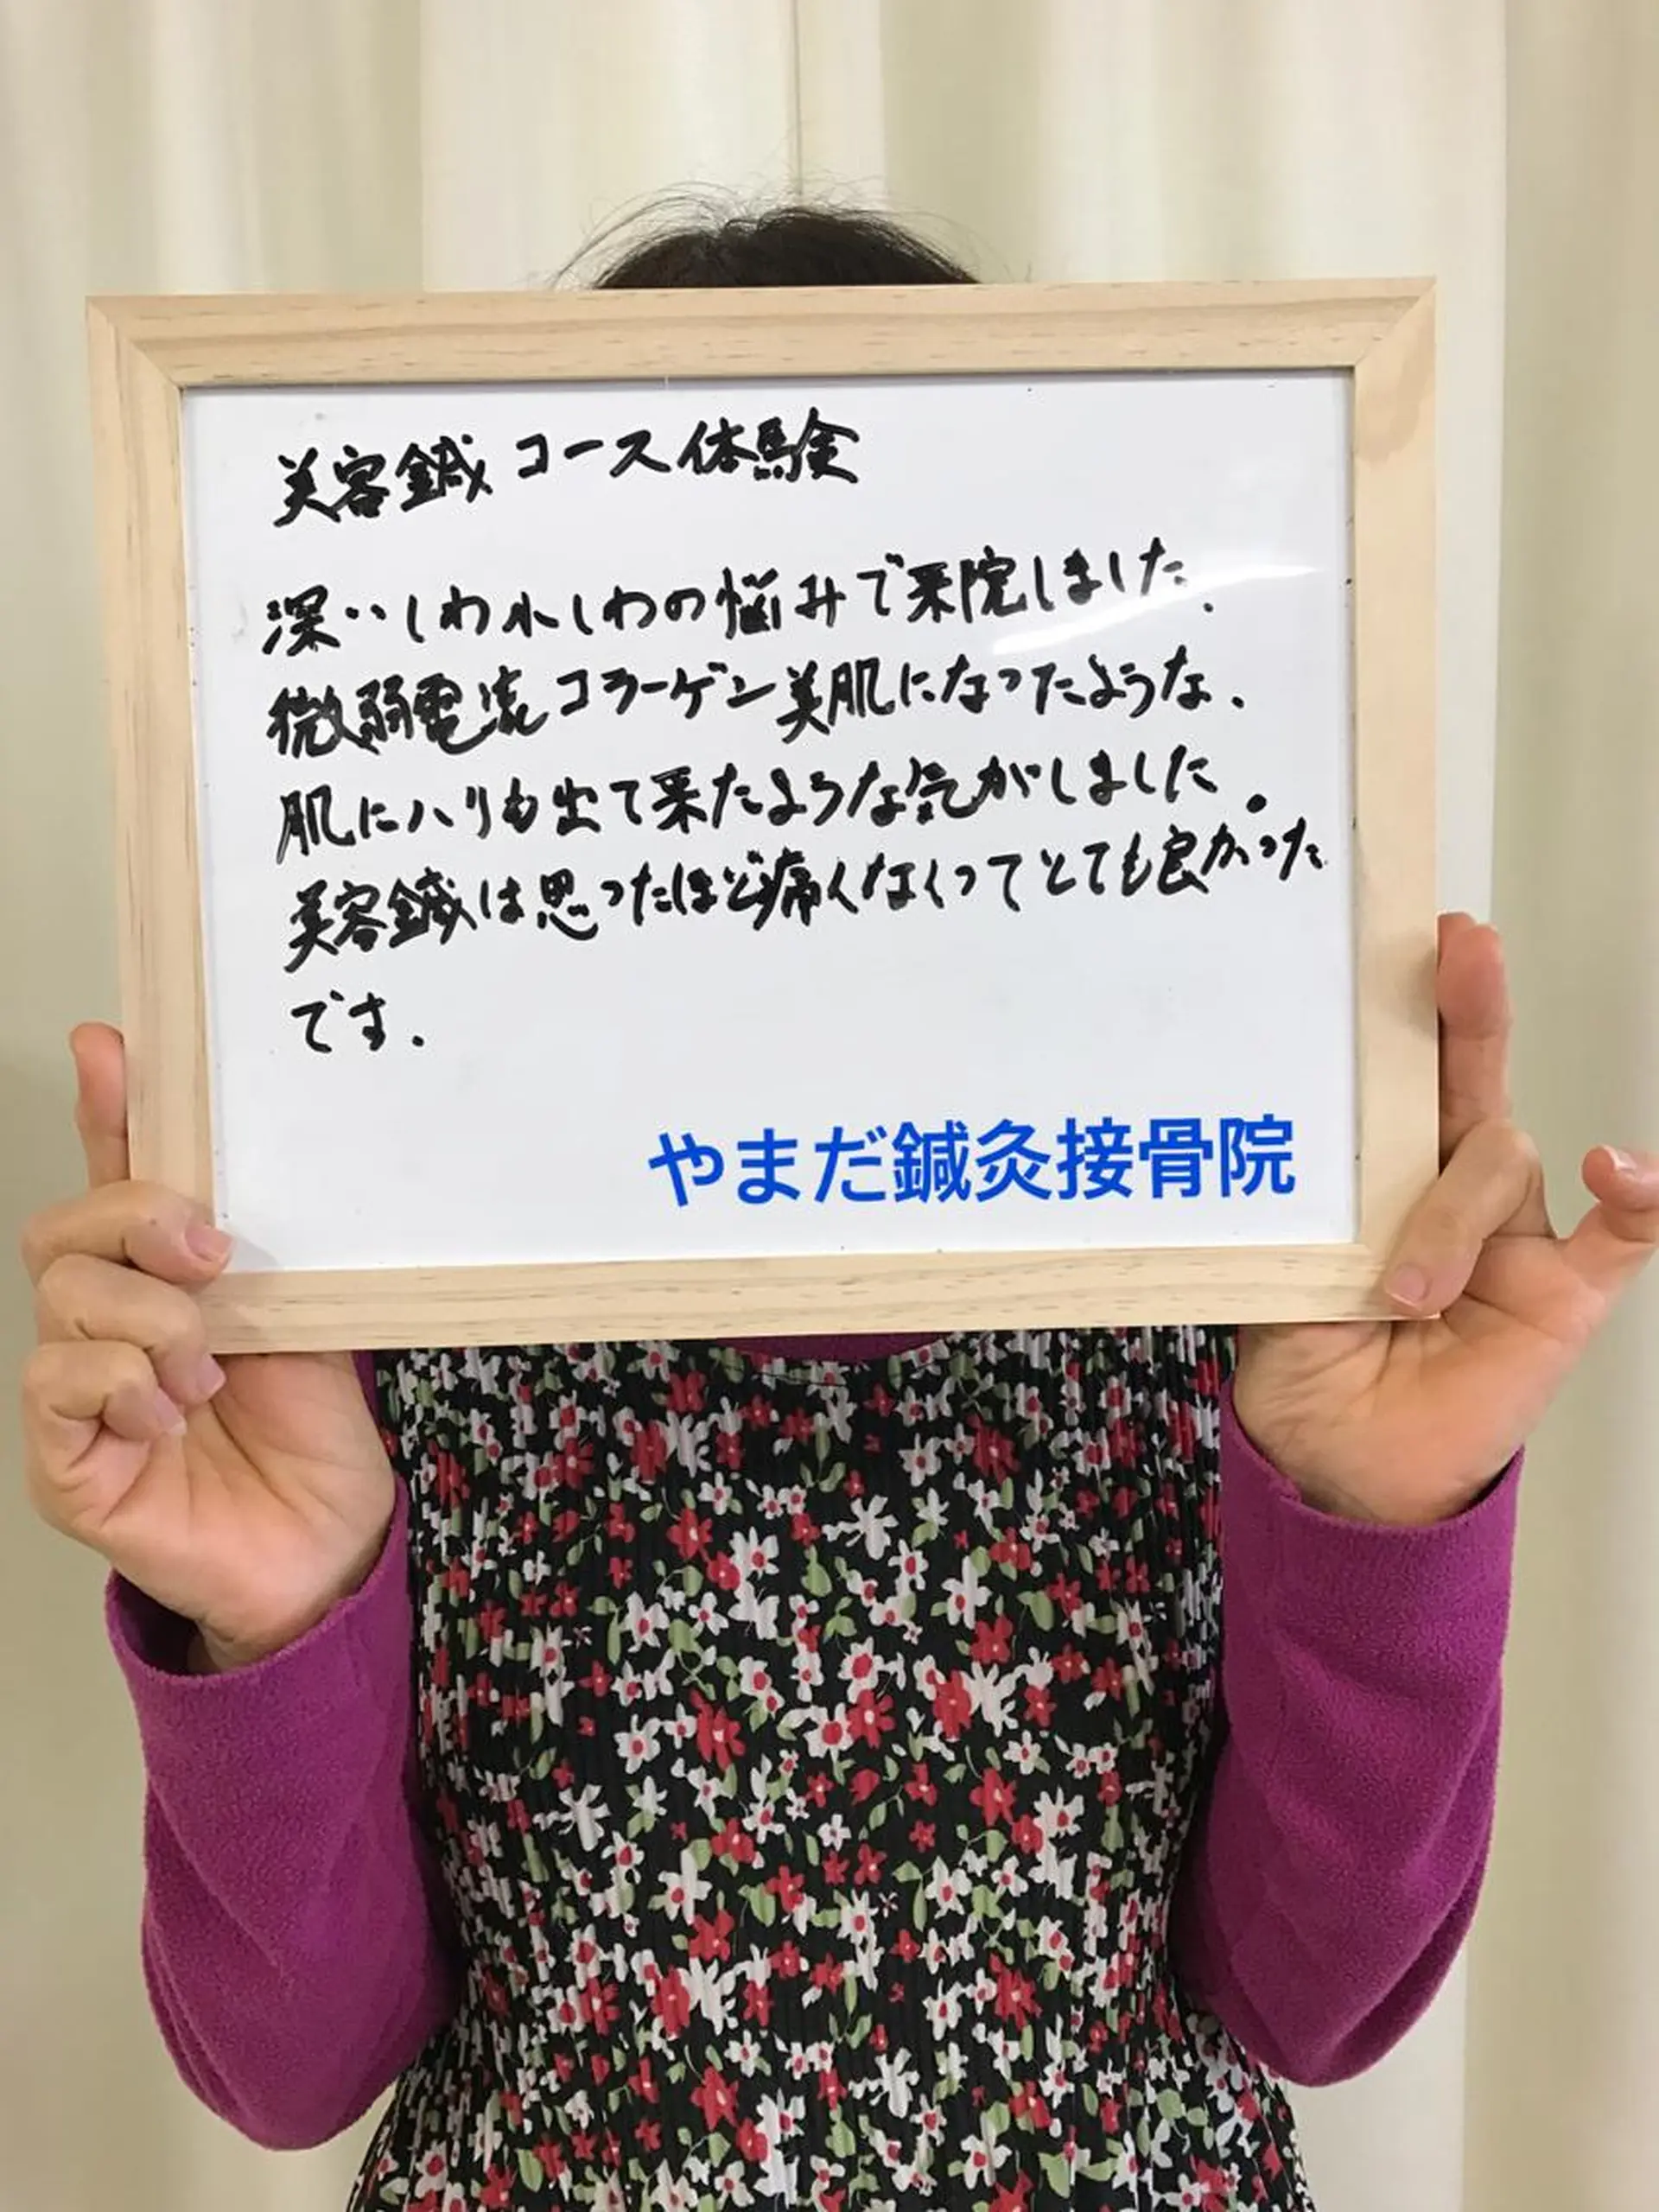 美容鍼コース体験
深いしわれしわの悩みで来院しました.
微弱電流コラーゲン美肌になったような.
肌にハリも出て来たような気がしました。
美容鍼は思ったほど痛くなくってとても良かった
です.
やまだ鍼灸接骨院